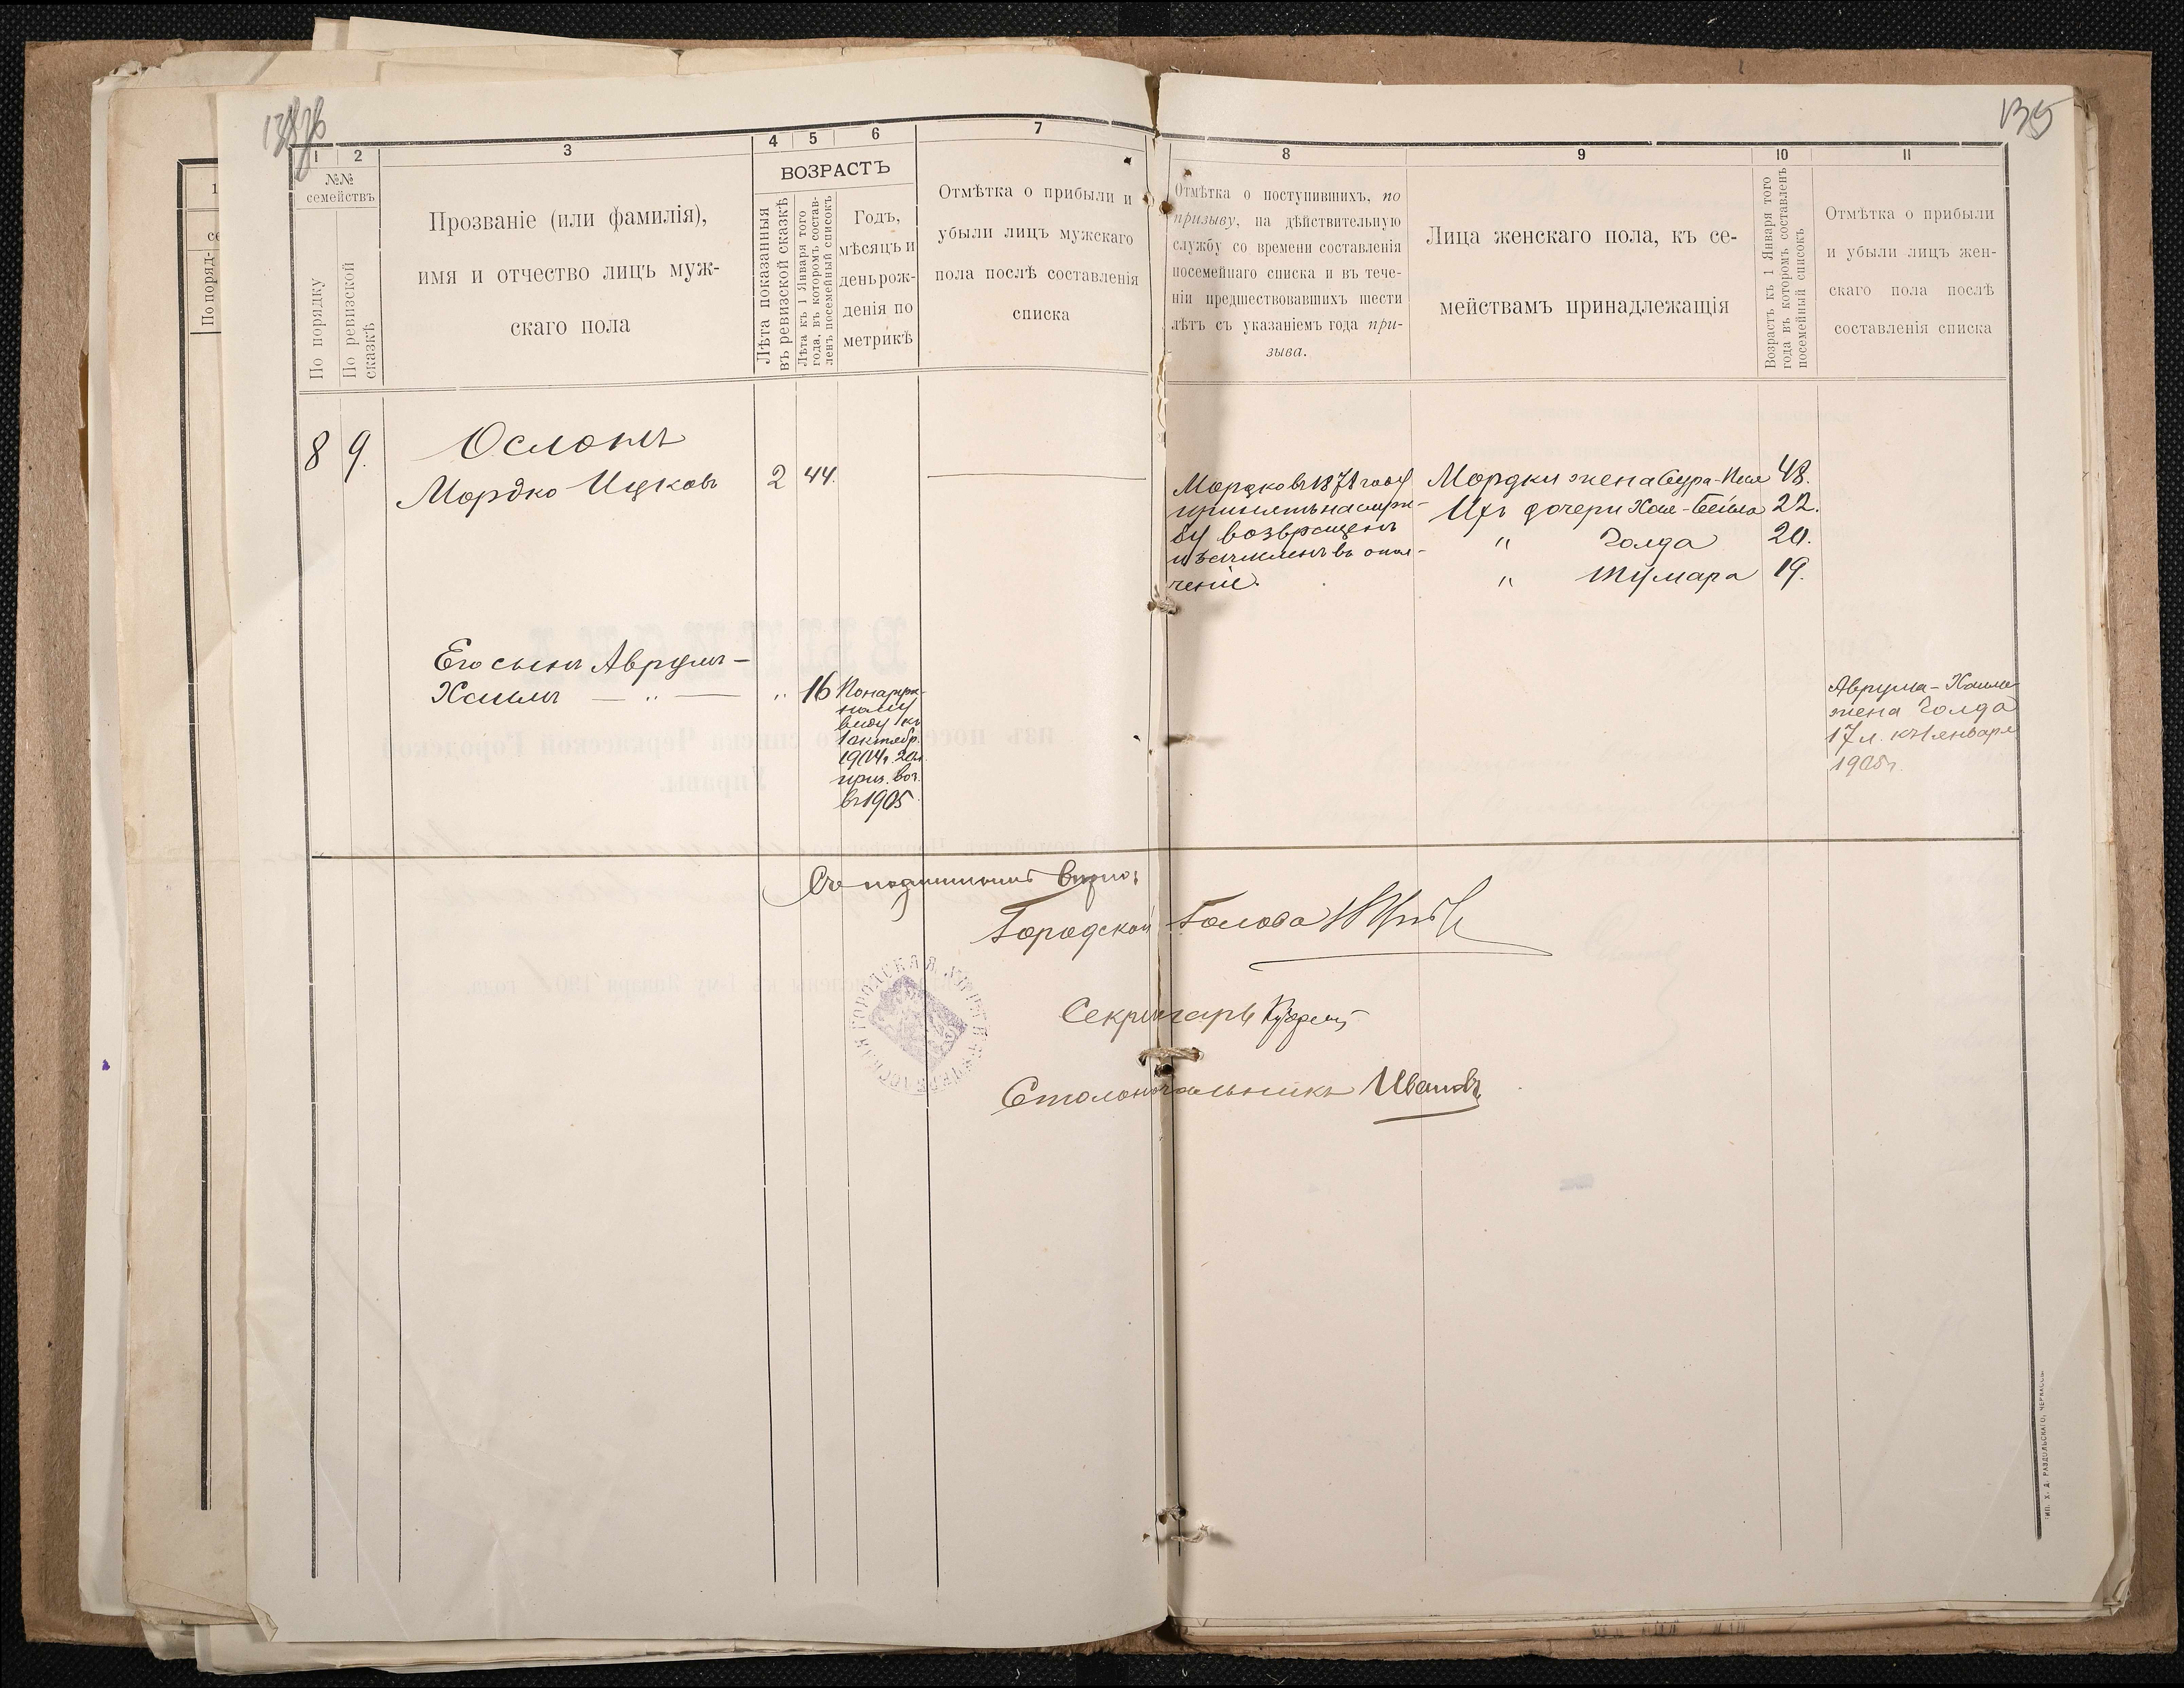 135
1 2 3 4 5 6 7
№№ семействъ
По порядку
По ревизской сказкѣ
Прозваніе (или фамилія),
имя и отчество лицъ муж-
скаго пола
ВОЗРАСТЪ
Лѣта показанныя
въ ревизской сказкѣ
Лѣта къ 1 Января того
года, въ которомъ состав-
ленъ посемейный списокъ
Годъ,
мѣсяцъ и
день рож-
денія по
метрикѣ
Отмѣтка о прибыли и
убыли лицъ мужскаго
пола послѣ составленія
списка
8 9 10 11
Отмѣтка о поступившихъ, по
призыву, на дѣйствительную
службу со времени составленія
посемейнаго списка и въ тече-
ніи предшествовавшихъ шести
лѣтъ съ указаніемъ года при-
зыва.
Лица женскаго пола, къ се-
мействамъ принадлежащія
Возрастъ къ 1 Января того
года въ которомъ составленъ
посемейный списокъ
Отмѣтка о прибыли
и убыли лицъ жен-
скаго пола послѣ
составленія списка
1
По поряд-
8 9.
Ослонъ
Мордко Ицковъ 2 44.
Его сынъ Аврумъ-
Хаимъ — „ — „ 16
По наруж-
ному
виду къ
1 октябр.
1904г. 20л.
приз. воз.
въ 1905
Мордко въ 1871 году
принятъ на служ-
бу возвращенъ
и зачисленъ въ опол-
ченіе.
Мордки жена Сура-Песя 48.
Ихъ дочери Хая-Бейла 22.
„ Голда 20.
„ Тумара 19.
Аврума-Хаима
жена Голда
17 л. къ 1 января
1905г.
Съ подлиннымъ вѣрно:
Городской Голова
Секретарь
Столоначальникъ Ивановъ
ТИП. Х. Д. РАЗДОЛЬСКАГО, ЧЕРКАССЫ.